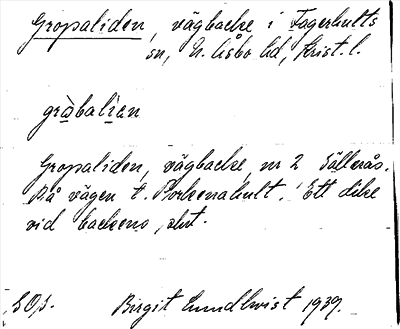 Gropaliden, vägbacke i Fagerhults
sn, N. Åsbo hd, Krist. l.
gràbalìən
Gropaliden, vägbacke, nr 2 Sällerås.
På vägen t. Porkenahult. Ett dike
vid backens slut.
Birgit Lundkvist 1939.